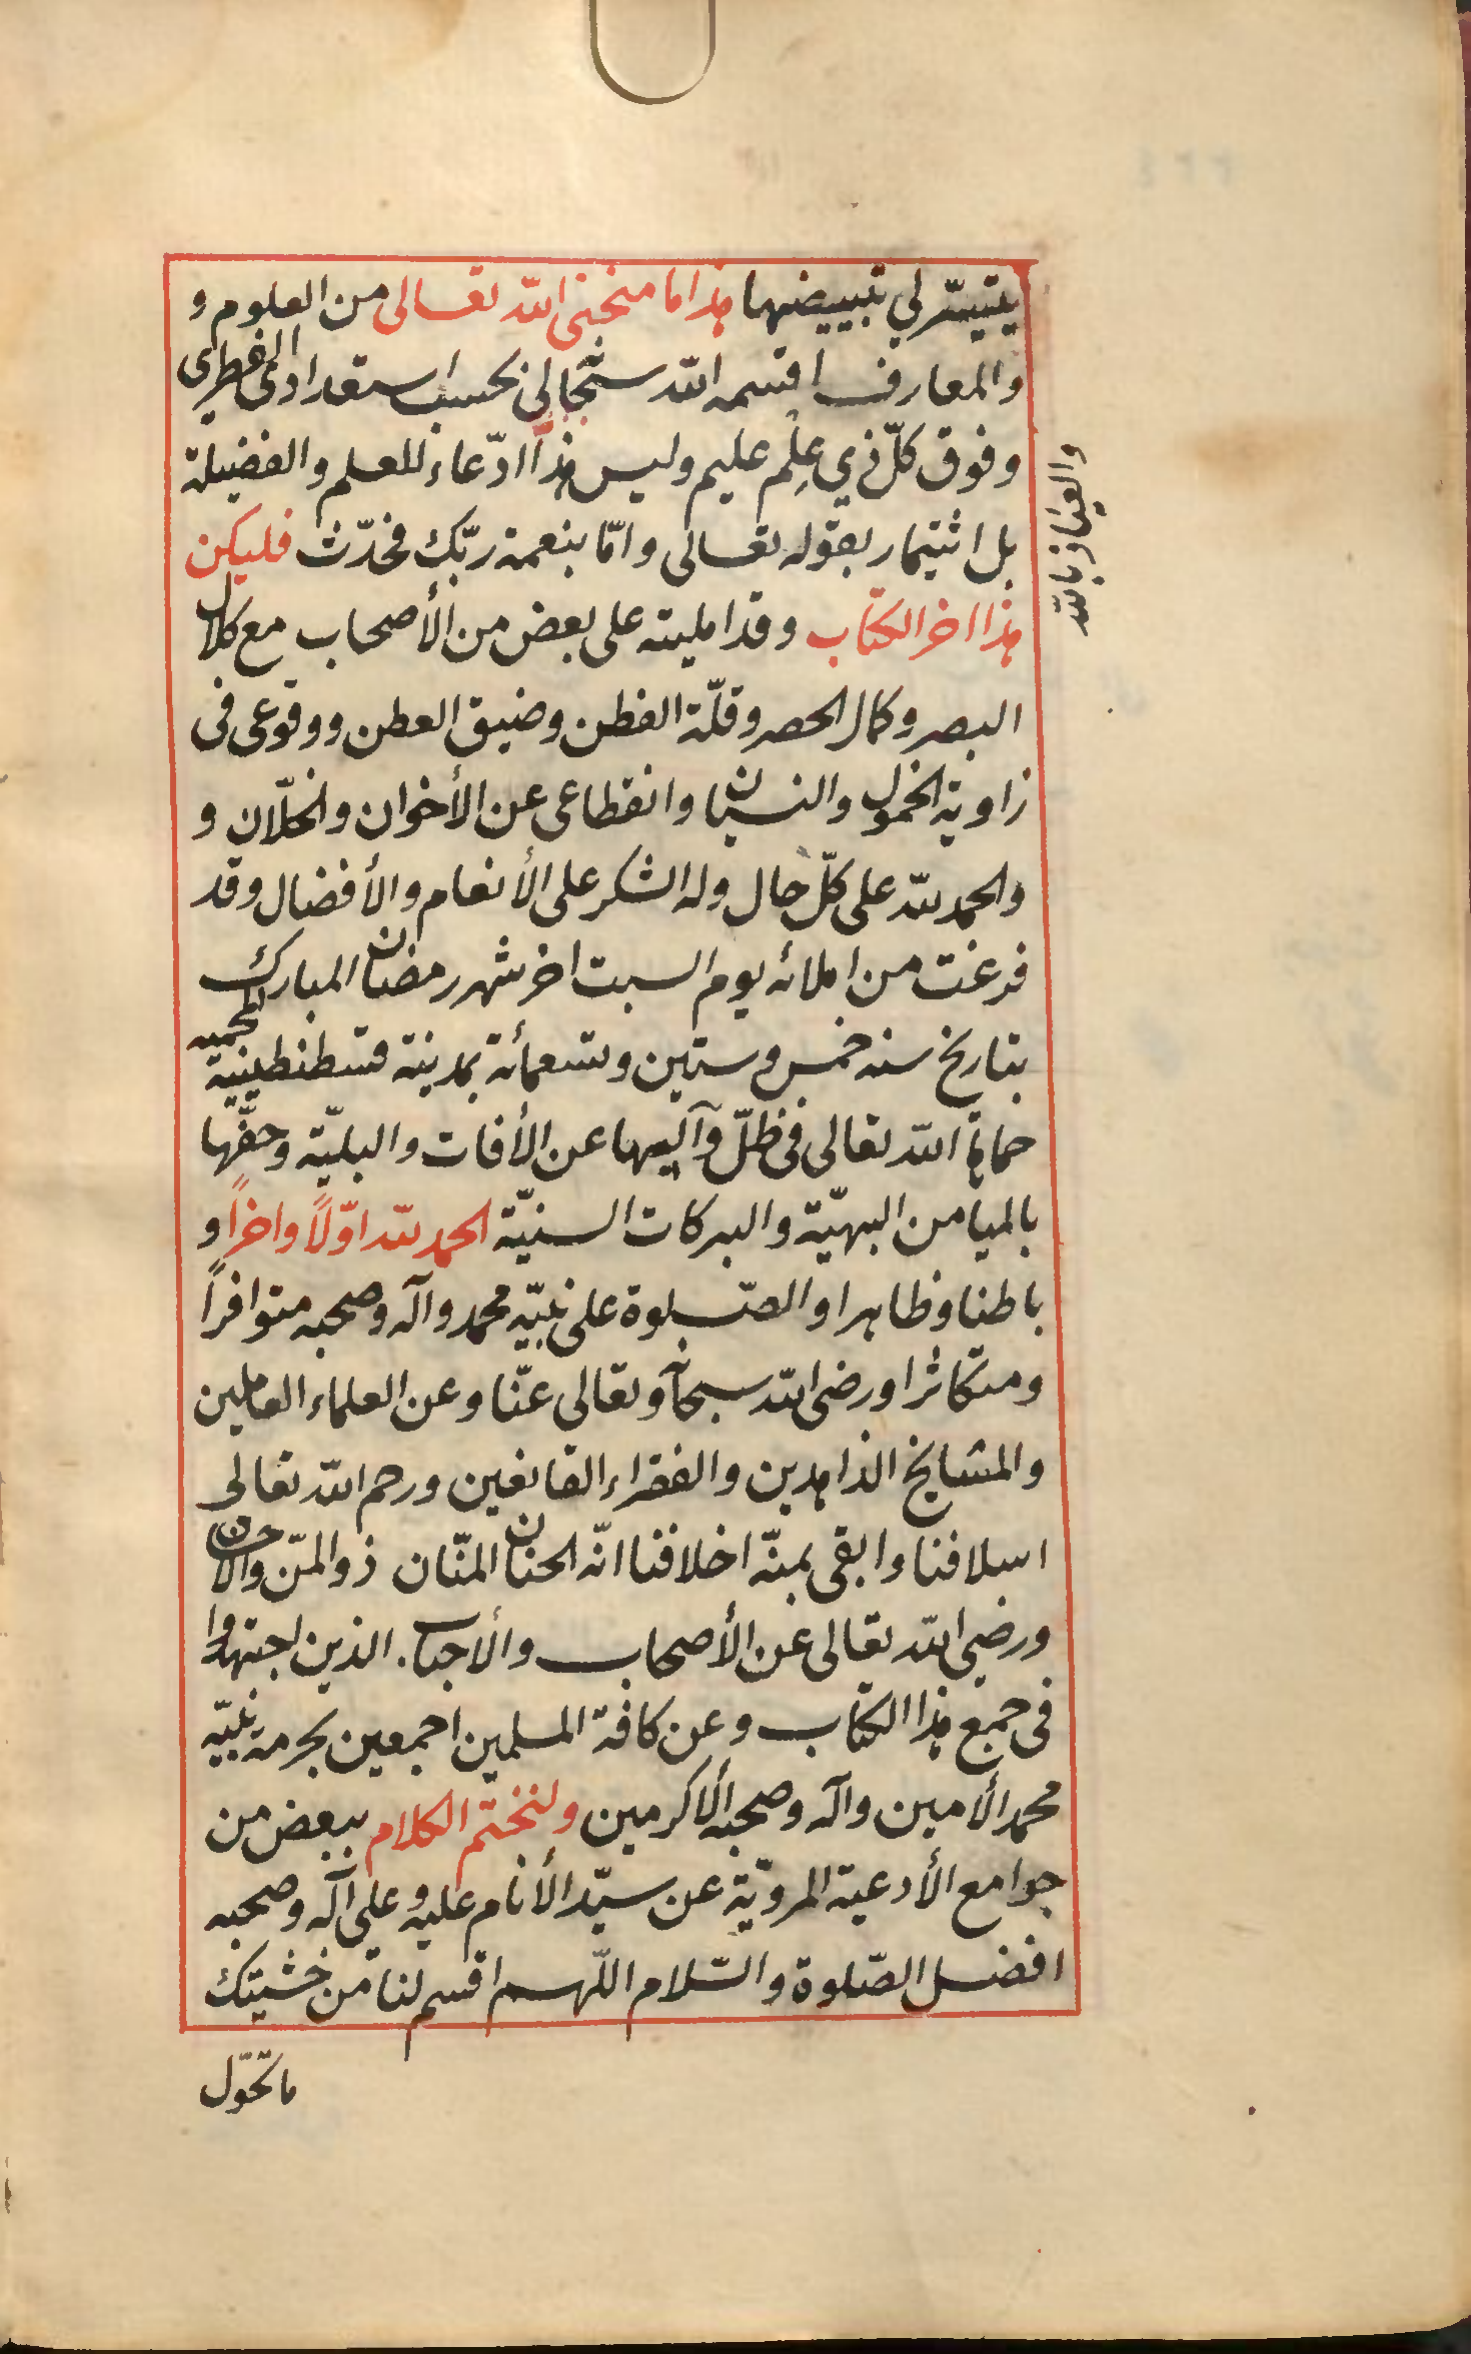 يتيسّر لي تبييضها هذا ما منحنى الله تعالى من العلوم و
والمعارف اقسمه الله سبحا لى بحسب استعدادى الفطرى
وفوق كلّ ذي عِلمٍ عليم وليس هذا ادّعاء للعلم والفضيلة
والعياذ بالله
بل اثتيمار بقوله تعالى وامّا بنعمة ربّك فحدّث فليكن
هذا اخر الكتاب وقد امليته على بعض من الأصحاب مع كلال
البصر وكمال الحصر وقلّة الفطن وضيق العطن ووقوعى فى
زاوية الخمول والنسيان وانقطاعى عن الأخوان والخلّان و
والحمد لله على كلّ حال وله الشكر على الأنعام والأفضال وقد
فرغت من املائه يوم السبت اخر شهر رمضان المبارك
بتاريخ سنه خمس وستين وتسعمائة بمدينة قسطنطينية المحميه
حماها الله تعالى فى ظلّ وآليها عن الأفات والبليّة وحفّها
بالميامن البهيّة والبركات السنيّة الحمد لله اوّلاً واخراً و
باطنا وظاهرا والصّلوة على نبيّه محمد وآله وصحبه متوافراً
ومتكاثرا ورضى الله سبحانه وتعالى عنّا وعن العلماء العاملين
والمشايخ الذاهدين والفقراء القانعين ورحم الله تعالى
اسلافنا وابقى بمنّه اخلافنا انّه الحنان المنّان ذو المنّ والاحسان
ورضى الله تعالى عن الأصحاب والأحباب. الذين اجتهدوا
فى جمع هذا الكتاب وعن كافة المسلمين اجمعين بحرمة نبيّه
محمد الأمين وآله وصحبه الأكرمين ولنختم الكلام ببعض من
جوامع الأدعية المرويّة عن سيّد الأنام عليه وعلى آله وصحبه
افضل الصّلوة والسّلام اللّهم اقسم لنا من خشيتك
ما تحّول